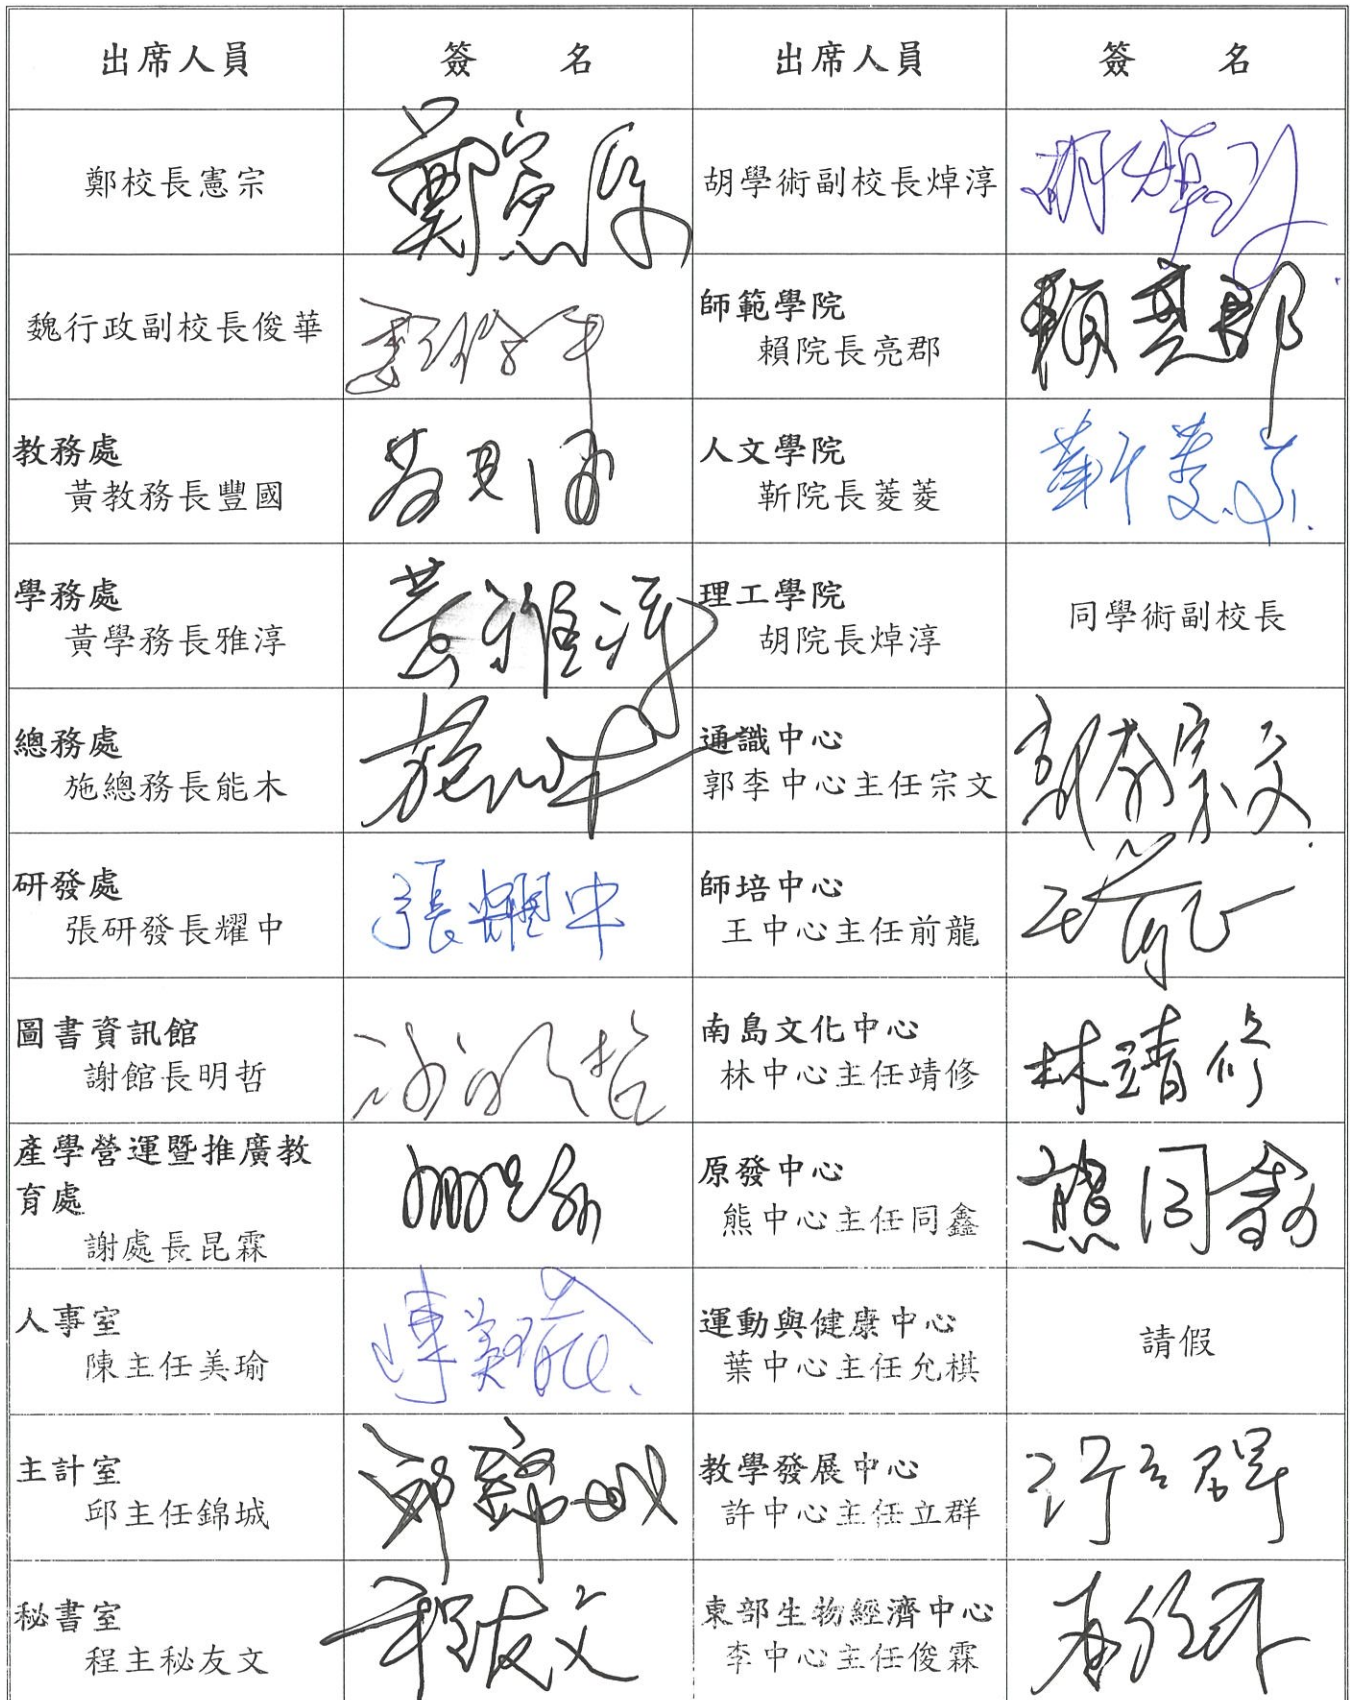 出席人員 簽 名 出席人員 簽 名
鄭校長憲宗 鄭憲宗 胡學術副校長焯淳 胡焯淳
魏行政副校長俊華 魏俊華
師範學院
賴院長亮郡 賴亮郡
教務處
黃教務長豐國
人文學院
靳院長菱菱 靳菱菱
學務處
黃學務長雅淳 黃雅淳
理工學院
胡院長焯淳
同學術副校長
總務處
施總務長能木 施能木
通識中心
郭李中心主任宗文 郭李宗文
研發處
張研發長耀中 張耀中
師培中心
王中心主任前龍 王前龍
圖書資訊館
謝館長明哲 謝明哲
南島文化中心
林中心主任靖修 林靖修
產學營運暨推廣教
育處
謝處長昆霖
原發中心
熊中心主任同鑫 熊同鑫
人事室
陳主任美瑜 陳美瑜
運動與健康中心
葉中心主任允棋
請假
主計室
邱主任錦城 邱錦城
教學發展中心
許中心主任立群 許立群
秘書室
程主秘友文 程友文
東部生物經濟中心
李中心主任俊霖 李俊霖